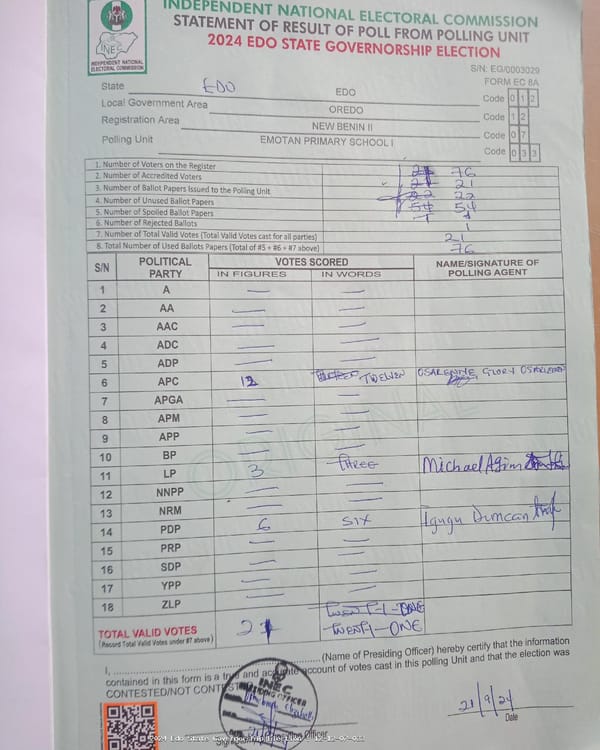 INDEPENDENT NATIONAL ELECTORAL COMMISSION
STATEMENT OF RESULT OF POLL FROM POLLING UNIT
2024 EDO STATE GOVERNORSHIP ELECTION
INEC
INDEPENDENT NATIONAL
ELECTORAL COMMISSION
S/N: EG/0003029
FORM EC 8A
State EDO EDO Code 0 1 2
Local Government Area OREDO Code 1 2
Registration Area NEW BENIN II Code 0 7
Polling Unit EMOTAN PRIMARY SCHOOL I Code 0 3 3
1. Number of Voters on the Register 76
2. Number of Accredited Voters 21
3. Number of Ballot Papers Issued to the Polling Unit 22
4. Number of Unused Ballot Papers 54 54
5. Number of Spoiled Ballot Papers 1
6. Number of Rejected Ballots 1
7. Number of Total Valid Votes (Total Valid Votes cast for all parties) 21
8. Total Number of Used Ballots Papers (Total of #5 + #6 + #7 above) 76
S/N POLITICAL PARTY VOTES SCORED NAME/SIGNATURE OF POLLING AGENT
IN FIGURES IN WORDS
1 A — —
2 AA — —
3 AAC — —
4 ADC — —
5 ADP — —
6 APC 12 TWELVEN GLORY
7 APGA — —
8 APM — —
9 APP — —
10 BP — —
11 LP 3 THREE Michael
12 NNPP — —
13 NRM — —
14 PDP 6 SIX Duncan
15 PRP — —
16 SDP — —
17 YPP — —
18 ZLP — TWENT-1-ONE
TOTAL VALID VOTES 21 TWENTI-ONE
(Record Total Valid Votes under #7 above)
ORIGINAL
I, (Name of Presiding Officer) hereby certify that the information
contained in this form is a true and accurate account of votes cast in this polling Unit and that the election was
CONTESTED/NOT CONTESTED
INEC
PRESIDING OFFICER
21/9/24
Date